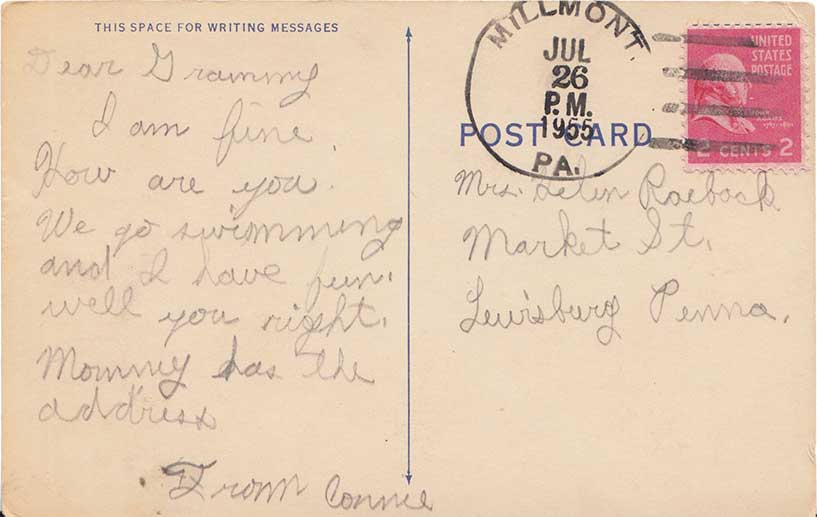 THIS SPACE FOR WRITING MESSAGES
Dear Grammy
I am fine.
How are you.
We go swimming
and I have fun.
well you right.
Mommey has the
address
From Connie
MILLMONT
JUL
26
P.M.
1955
PA.
UNITED
STATES
POSTAGE
2 CENTS 2
POST CARD
Mrs. Helen Roebock
Market St.
Lewisburg Penna.